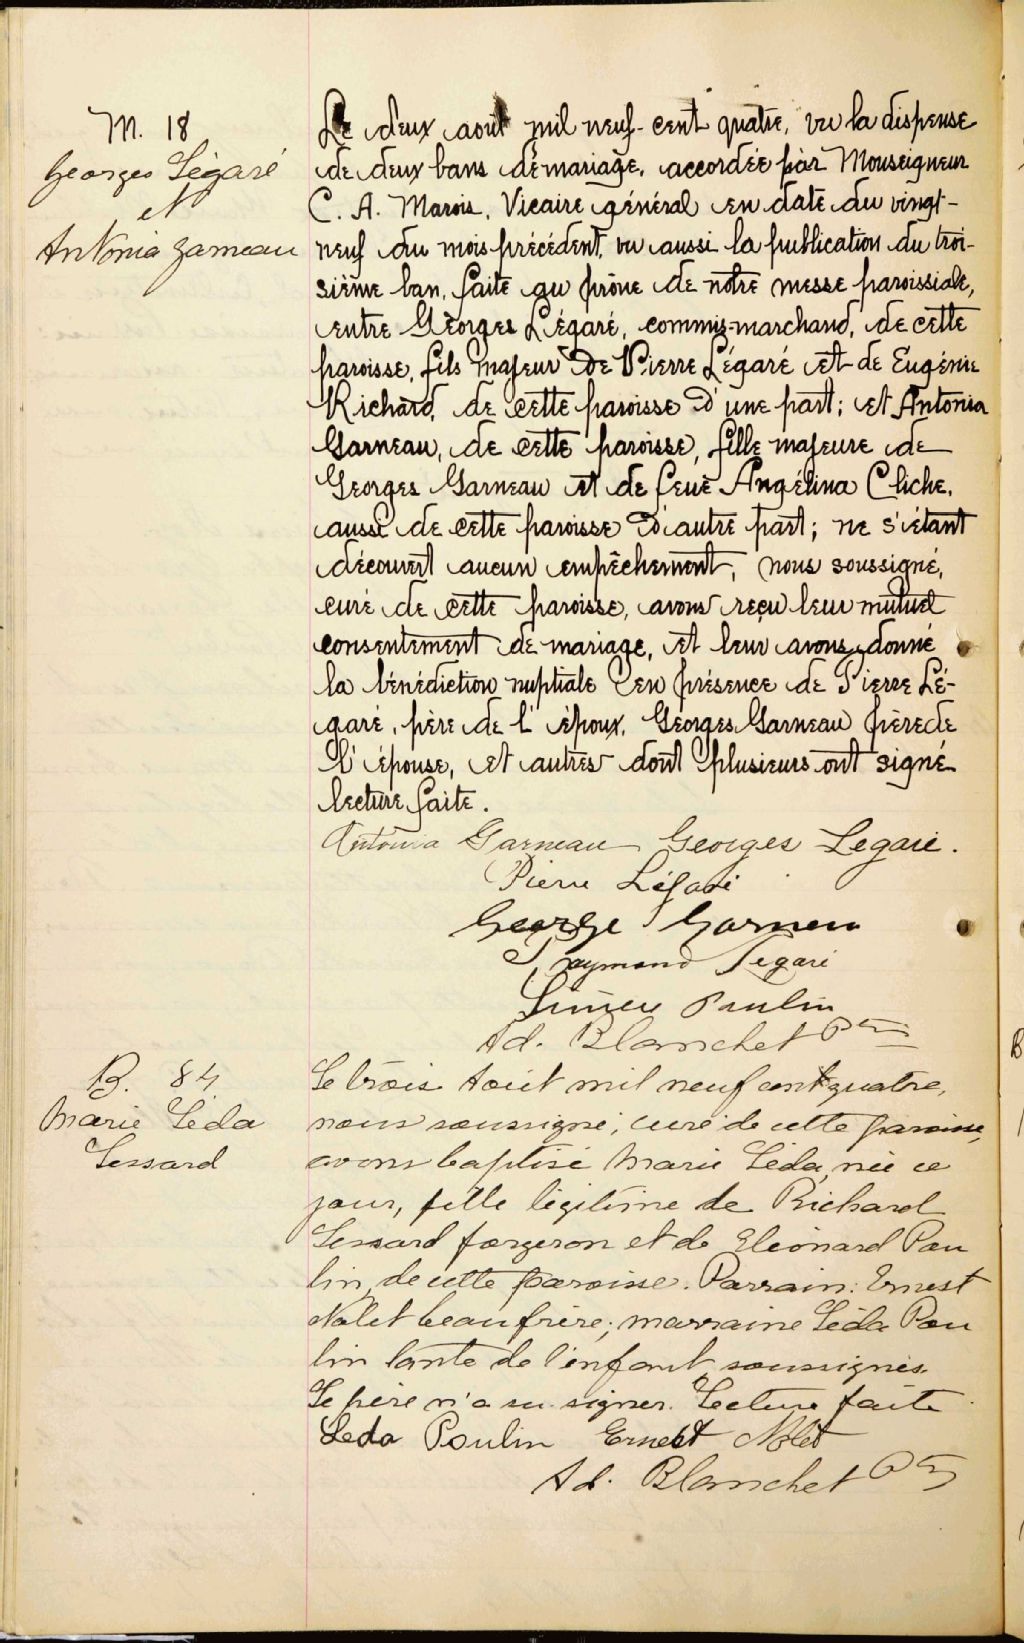 M. 18
Georges Légaré
et
Antonia Garneau
Le deux août mil neuf-cent quatre, vu la dispense
de deux bans de mariage, accordée par Monseigneur
C. A. Marois, Vicaire général en date du vingt-
neuf du mois précédent, vu aussi la publication du troi-
sième ban, faite au prône de notre messe paroissiale,
entre Georges Légaré, commis-marchand, de cette
paroisse, fils majeur de Pierre Légaré et de Eugénie
Richard, de cette paroisse d'une part; et Antonia
Garneau, de cette paroisse, fille majeure de
Georges Garneau et de feue Angélina Cliche,
aussi de cette paroisse d'autre part; ne s'étant
découvert aucun empêchement, nous soussigné,
curé de cette paroisse, avons reçu leur mutuel
consentement de mariage, et leur avons donné
la bénédiction nuptiale en présence de Pierre Lé-
garé, père de l'époux, Georges Garneau frère de
l'épouse, et autres dont plusieurs ont signé
lecture faite.
Antonia Garneau Georges Legaré.
Pierre Légaré
George Garneau
Raymond Légaré
Poulin
Ad. Blanchet Ptre
B. 84
Marie Léda
Lessard
Le trois Août mil neuf cent quatre,
nous soussigné, curé de cette paroisse,
avons baptisé Marie Léda, née ce
jour, fille légitime de Richard
Lessard forgeron et de Eléonard Pou
lin, de cette paroisse. Parrain: Ernest
Nolet beaufrère; marraine Léda Pou
lin tante de l'enfant, soussignés.
Le père n'a su signer. Lecture faite.
Leda Poulin Ernest Nolet
Ad. Blanchet Ptre
B